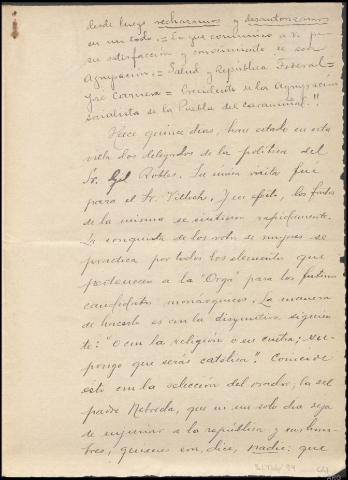 desde luego rechazamos y desautorizamos
en un todo.= Lo que comunico a V. pa
su satisfacción y conocimiento de esa
Agrupación.= Salud y República Federal=
José Carnero= Presidente de la Agrupación
socialista de la Puebla del Caramiñal."
Hace quince días, han estado en esta
villa dos delegados de la política del
Sr. Gil Robles. Su única visita fué
para el Sr. Viturro. Y en efecto, los frutos
de la misma se sintieron rapidamente.
La conquista de los votos de mujeres se
practica por todos los elementos que
pertenecen a la "Orga" para los futuros
candidatos monárquicos. La manera
de hacerlo es con la disyuntiva siguien
te: "O con la religión o en contra; su-
pongo que serás católica". Coincide
esto con la selección del orador, la del
padre Nebreda, que ni un solo día deja
de injuriar a la república y sus hom-
bres, quienes son, dice, nadie; que